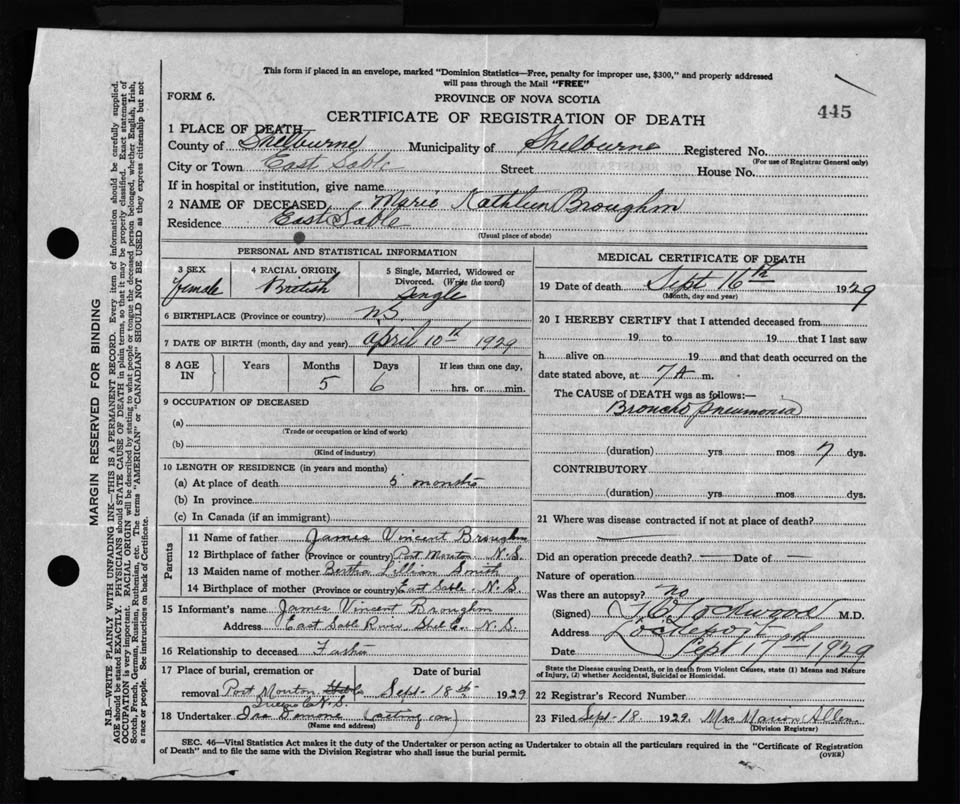 This form if placed in an envelope, marked "Dominion Statistics—Free, penalty for improper use, $300," and properly addressed
will pass through the Mail "FREE"
FORM 6.
PROVINCE OF NOVA SCOTIA
445
CERTIFICATE OF REGISTRATION OF DEATH
1 PLACE OF DEATH
County of Shelburne Municipality of Shelburne Registered No.
(For use of Registrar General only)
City or Town East Sable Street House No.
If in hospital or institution, give name
2 NAME OF DECEASED, Marie Kathleen Broughm
Residence East Sable
(Usual place of abode)
PERSONAL AND STATISTICAL INFORMATION
3 SEX 4 RACIAL ORIGIN 5 Single, Married, Widowed or
Divorced. (Write the word)
female British Single
6 BIRTHPLACE (Province or country) N.S.
7 DATE OF BIRTH (month, day and year) April 10th 1929
8 AGE IN Years Months Days If less than one day,
5 6 hrs. or min.
9 OCCUPATION OF DECEASED
(a)
(Trade or occupation or kind of work)
(b)
(Kind of industry)
10 LENGTH OF RESIDENCE (in years and months)
(a) At place of death 5 months
(b) In province
(c) In Canada (if an immigrant)
Parents
11 Name of father James Vincent Broughm
12 Birthplace of father (Province or country) Port Mouton N.S.
13 Maiden name of mother Bertha Lillian Smith
14 Birthplace of mother (Province or country) East Sable. N.S.
15 Informant's name James Vincent Broughm
Address East Sable River, Shel Co. N.S.
16 Relationship to deceased Father
17 Place of burial, cremation or Date of burial
removal Port Mouton Sept. 18th 1929
Queens Co N.S.
18 Undertaker Ira (acting as)
(Name and address)
MEDICAL CERTIFICATE OF DEATH
19 Date of death Sept 16th 1929
(Month, day and year)
20 I HEREBY CERTIFY that I attended deceased from
19 to 19 that I last saw
h alive on 19 and that death occurred on
date stated above, at 7 A m.
The CAUSE of DEATH was as follows:—
Broncho pneumonia
(duration) yrs. mos 7 dys.
CONTRIBUTORY
(duration) yrs. mos. dys.
21 Where was disease contracted if not at place of death?
Did an operation precede death? — Date of —
Nature of operation
Was there an autopsy? no
(Signed) M.D.
Address Lockeport
Date Sept 17th 1929
State the Disease causing Death, or in death from Violent Causes, state (1) Means and Nature
of Injury, (2) whether Accidental, Suicidal or Homicidal.
22 Registrar's Record Number
23 Filed Sept. 18. 1929. Mrs Marion Allen.
(Division Registrar)
SEC. 46—Vital Statistics Act makes it the duty of the Undertaker or person acting as Undertaker to obtain all the particulars required in the "Certificate of Registration
of Death" and to file the same with the Division Registrar who shall issue the burial permit. (OVER)
MARGIN RESERVED FOR BINDING
N.B.—WRITE PLAINLY WITH UNFADING INK—THIS IS A PERMANENT RECORD. Every item of information should be carefully supplied.
AGE should be stated EXACTLY. PHYSICIANS should STATE CAUSE OF DEATH in plain terms, so that it may be properly classified. Exact statement of
OCCUPATION is very important. RACIAL ORIGIN will be described by stating to what people or tongue the deceased person belonged, whether English, Irish,
Scotch, French, German, Russian, Ruthenian, etc. The terms "AMERICAN" or "CANADIAN" SHOULD NOT BE USED as they express citizenship but not
a race or people. See instructions on back of Certificate.